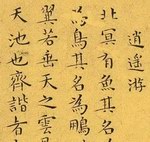 逍遙游
北冥有魚其名
為鳥其名為鵬
翼若垂天之雲是
天池也齊諧者